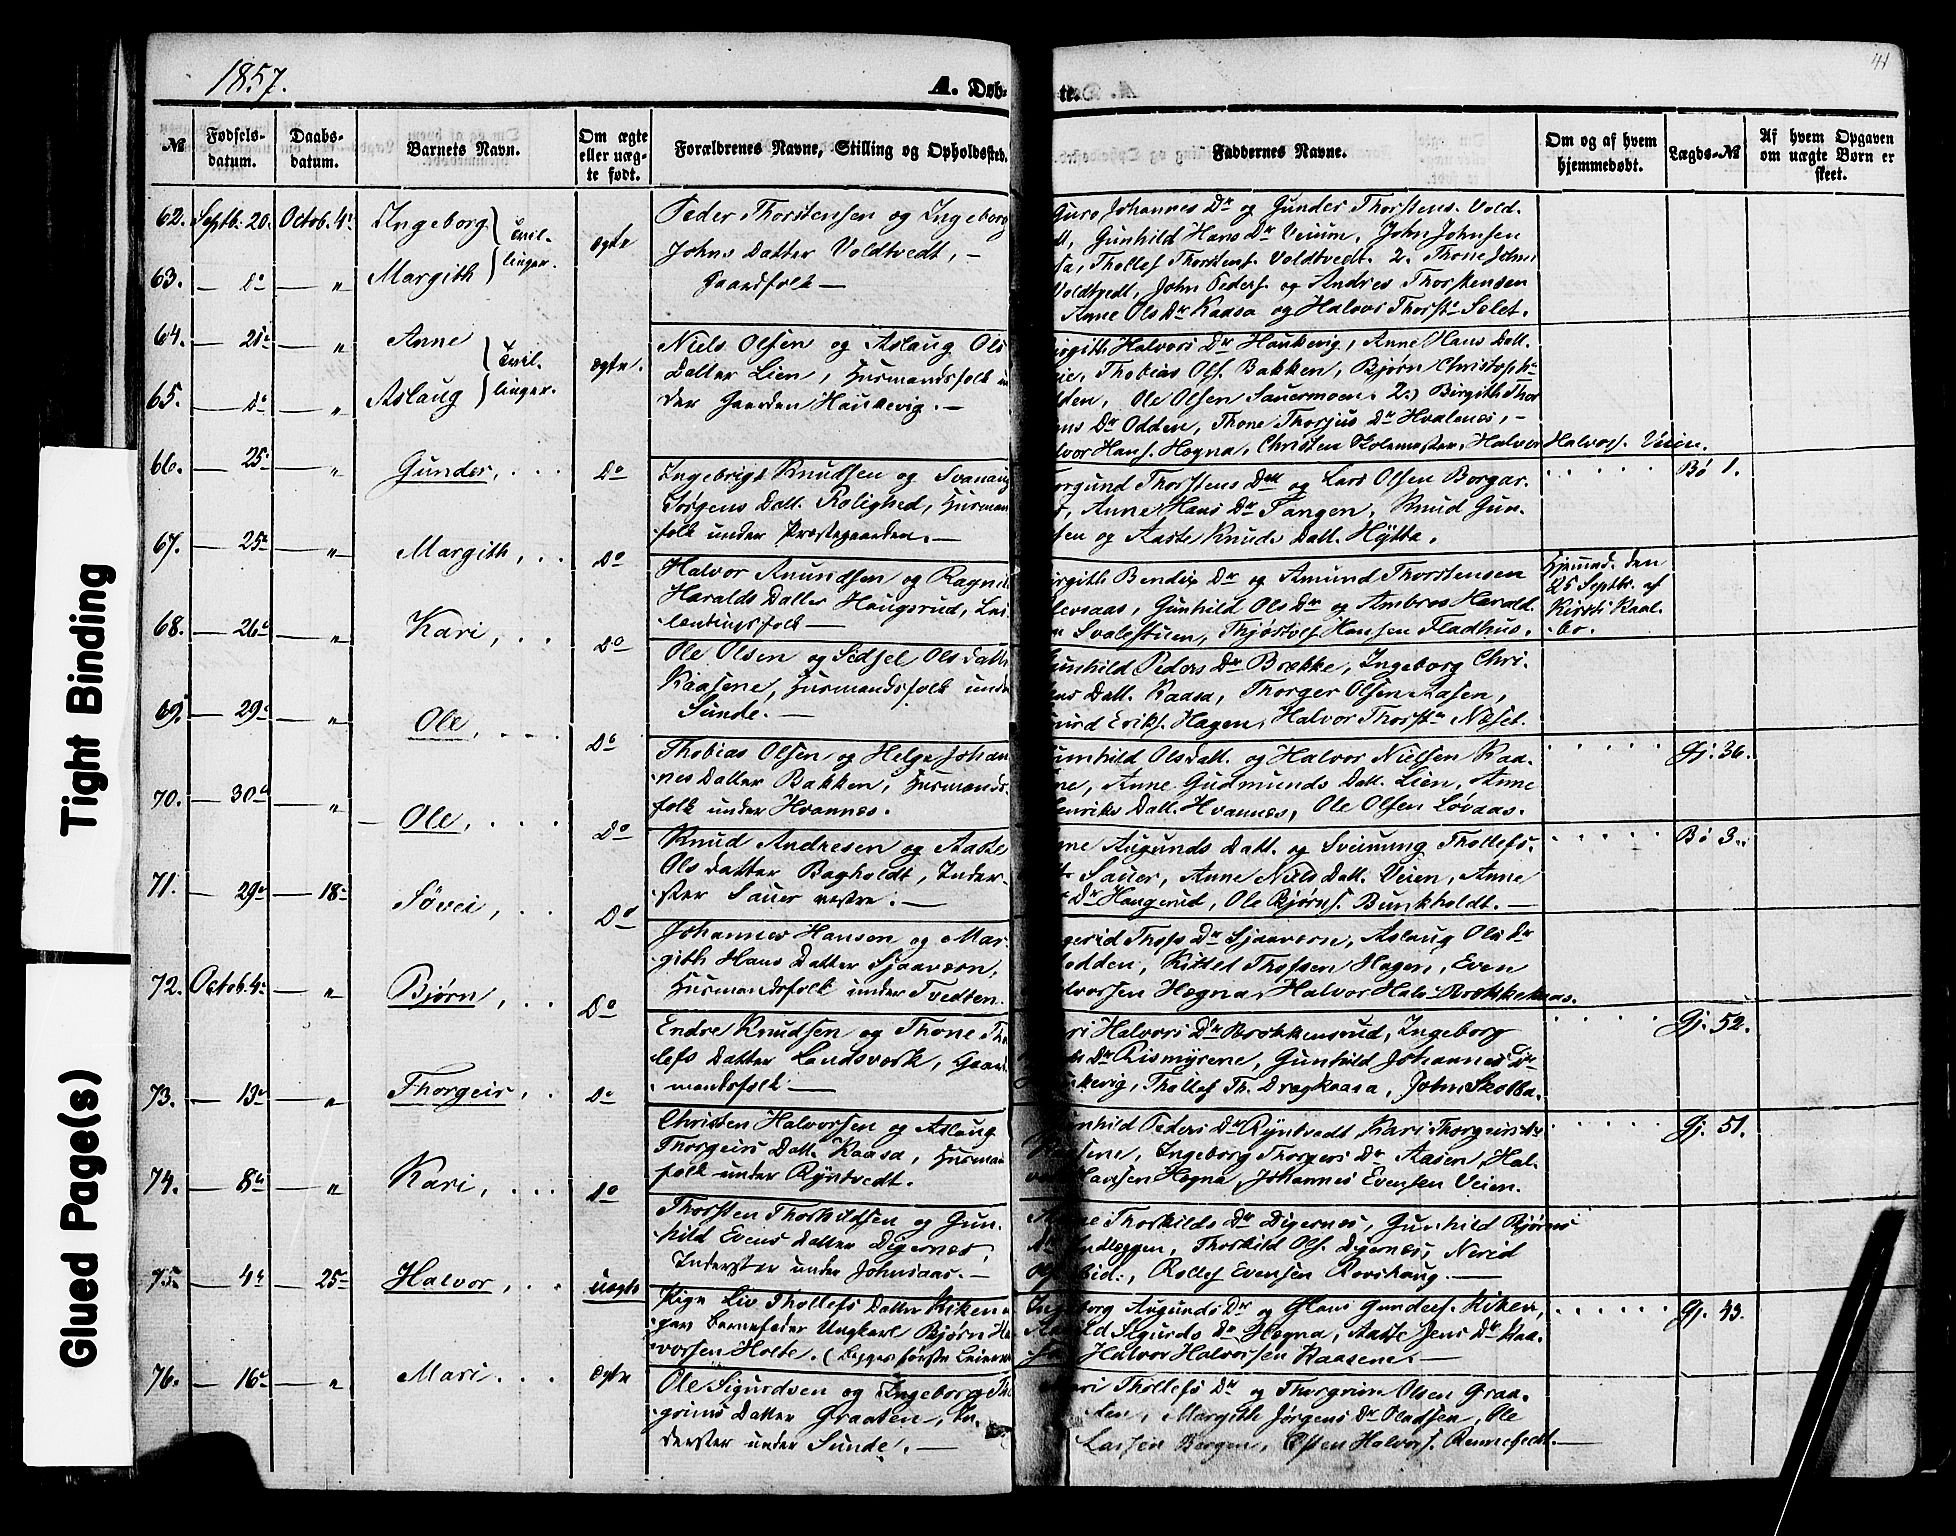 1857.
A. Døb-
te.
41
№
Fødsels-
datum.
Daabs-
datum.
Barnets Navn.
Om ægte
eller uæg-
te født.
Forældrenes Navne, Stilling og Opholdssted.
Faddernes Navne.
Om og af hvem
hjemmedøbt.
Lægds-№
Af hvem Opgaven
om uægte Børn er
skeet.
62. Septb. 20. Octob. 4. Ingeborg } Tvil-
63. — do — „ Margith } linger.
ægte
Peder Thorstensen og Ingeborg
Johns Datter Voldtvedt, —
Gaardfolk —
Guro Johannes Dr og Gunder Thorstens. Vold-
Gunhild Hans Dr Veium, John Johnsen
Thollef Thorstens. Voldtvedt. 2. Thone Johns
Voldtvedt, John Peders. og Andres Thorstensen
Anne Ols Dr Kaasa og Halvor Thorst. Selet.
64. — 25 — „ Anne } Tvil-
65. — do — „ Aslaug } linger.
ægte.
Niels Olsen og Aslaug Ols
Datter Lien, Husmandsfolk un
der Gaarden Haukevig. —
Halvors Dr Haukevig, Anne Hans Datt.
Thobias Ols. Bakken, Bjørn Christoph.
Ole Olsen Sauermoen. 2.) Birgith Thor
Dr Odden, Thone Thorjus Dr Hvalenes, —
Hans. Hegna, Christen Skolemester, Halvor Halvors. Veien.
66. — 25 — „ Gunder, . . .
Do
Ingebrigt Knudsen og Svanaug
Jørgens Datt. Rolighed, Husman
folk under Præstegaarden. —
Thorstens Datt og Lars Olsen Borgar-
Anne Hans Dr Tangen, Knud Gun-
sen og Aaste Knuds Datt. Hytta.
Bø 1.
67. — 25 — „ Margith, . .
Do
Halvor Anundsen og Ragnil
Haralds Datter Haugsrud, Lei-
lændingsfolk —
Bendix Dr og Amund Thorstensen
Gunhild Ols Dr og Ambros Harald-
Svalestuen, Thjøstolf Hansen Fladhus.
Hjemmed. den
25 Septbr. af
Kirsti Kaal-
bo.
68. — 26 — „ Kari, . .
Do
Ole Olsen og Sidsel Ols Datt.
Kaasene, Husmandsfolk under
Sunde. —
Gunhild Peders Dr Brekke, Ingeborg Chri-
Datt. Kaasa, Thorger Olsen Aasen,
Eriks. Hagen, Halvor Thorst. Neset.
69. — 29 — „ Ole, . . .
Do
Thobias Olsen og Helge Johan
nes Datter Bakken, Husmands-
folk under Hvannes.
Gunhild Ols Datt. og Halvor Nielsen Kaa-
Anne Gudmunds Datt. Lien, Anne
Henriks Datt. Hvannes, Ole Olsen Løvaas.
Gj. 36.
70. — 30 — „ Ole, . . .
Do
Knud Andresen og Aaste
Ols Datter Bagholdt, Inder-
ster Sauer vestre. —
Augunds Datt. og Sveinung Thollefs.
Sauer, Anne Niels Datt. Veien, Anne
Dr Haugerud, Ole Bjørns. Bunkholdt. —
Bø 3.
71. — 29 — 18 — Søvei, . .
Do
Johannes Hansen og Mar-
gith Hans Datter Sjaavern,
Husmandsfolk under Tvedten.
Thofs Dr Sjaavern, Aslaug Ols Dr
Kittel Thofsen Hagen, Even
Halvorsen Hegna, Halvor Hals. Brekkekaas.
72. Octob. 4. — „ Bjørn, . .
Do
Endre Knudsen og Thone Tho
lefs Datter Landsverk, Gaard
mandsfolk. —
Halvors Dr Brekkensrud, Ingeborg
Dr Rismyrene, Gunhild Johannes Dr
Haukevig, Thollef Th. Dragkaasa, John Skolba.
Gj. 52.
73. — 13 — „ Thorgeir, .
Do
Christen Halvorsen og Aslaug
Thorgeirs Datt. Kaasa, Husman
folk under Ryntvedt.
Gunhild Peders Dr Ryntvedt, Kari Thorgeirs Dr
Ingeborg Thorgers Dr Aasen, Hal-
Hansen Hegna, Johannes Evensen Veien.
Gj. 51.
74. — 8 — „ Kari, . . .
Do
Thorsten Thorkildsen og Gun-
hild Evens Datter Digernes,
Inderster under Johnsaas. —
Thorkilds Dr Digernes, Gunhild Bjørns
Thorkild Ols. Digernes, Nerid
Rollef Evensen Rorskaug. —
75. — 4 — 25 — Halvor, . .
uægte
Pige Liv Thollefs Datter Riken
Barnefader Ungkarl Bjørn Ha
vorsen Holte. (Begges første Leierm
Ingeborg Augunds Dr og Hans Gunders. Riken,
Sigurds Dr Hegna, Aaste Jens Dr Kaa-
Halvor Halvorsen Kaasene. —
Gj. 43.
76. — 16 — „ Mari. . . .
ægte
Ole Sigurdsen og Ingeborg Th
grims Datter Graaten, In-
derster under Sunde. —
Thollefs Dr og Thorgrim Olsen Graa-
Margith Jørgens Dr Oladsen, Ole
Larsen Borgen, Østen Halvors. Rennefedt. —
Tight Binding
Glued Page(s)